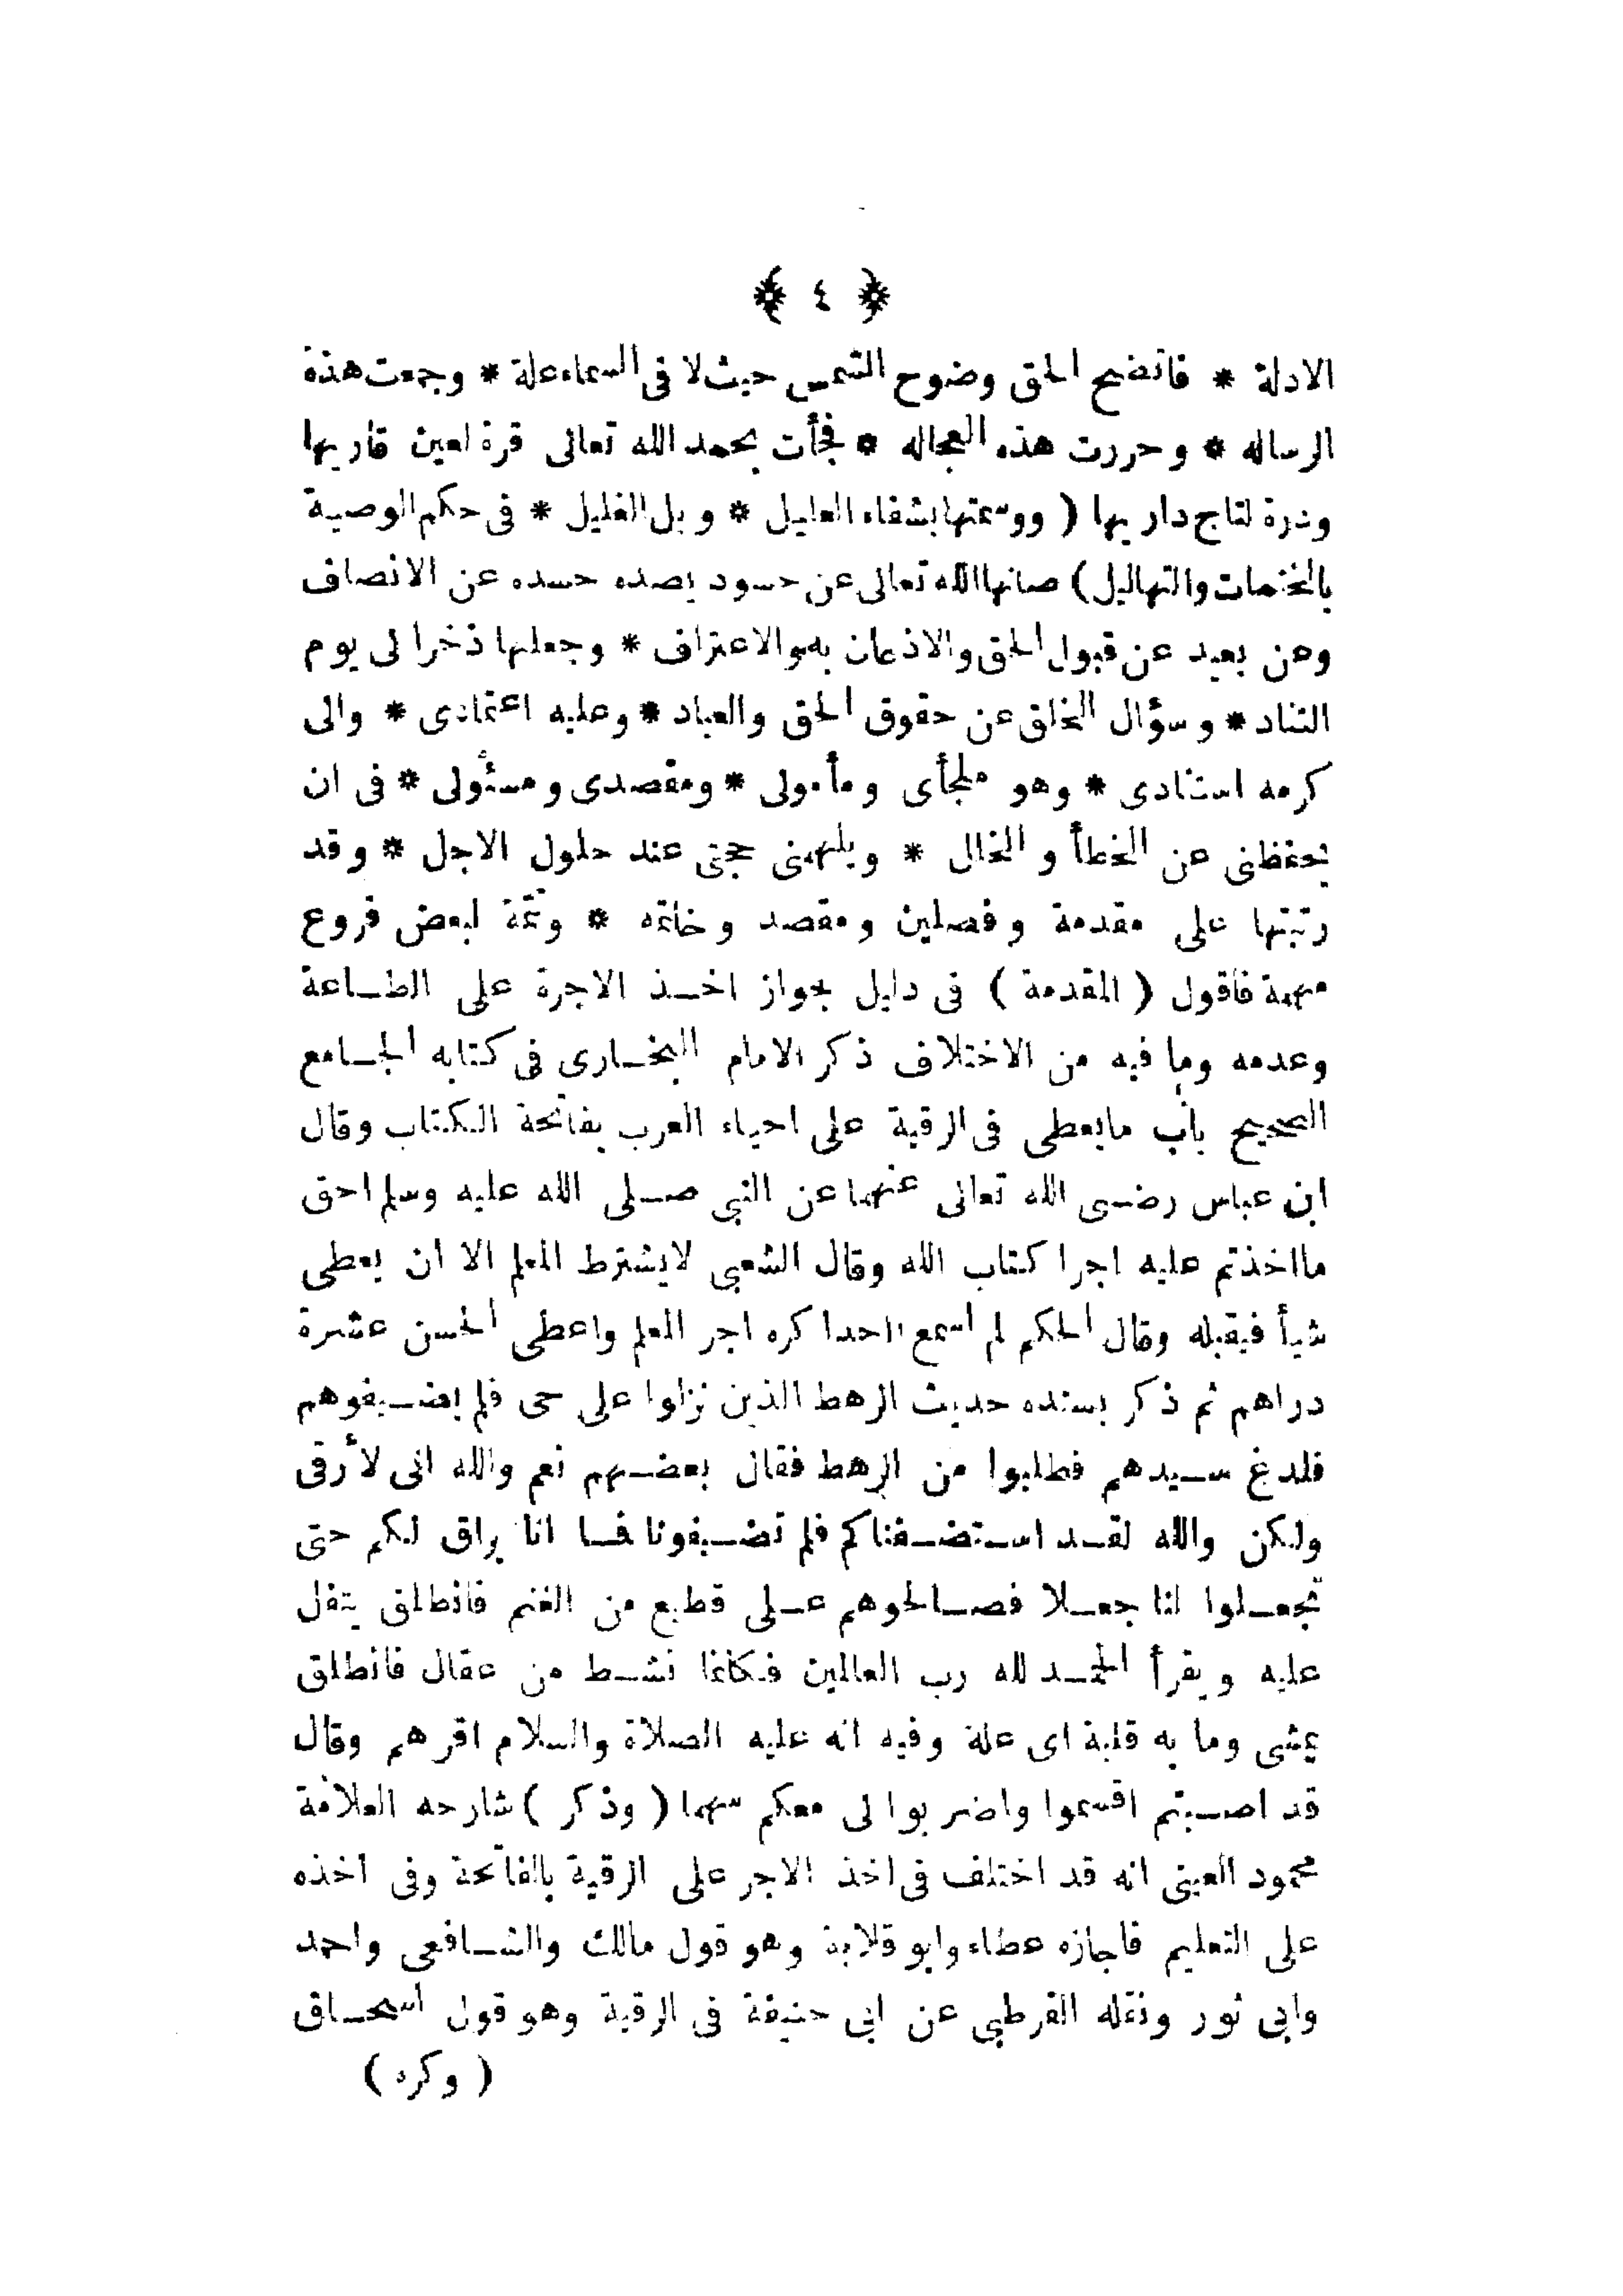 ﴿ ٤ ﴾
الادلة * فاتضح الحق وضوح الشمس حيث لا فى السماء علة * وجمعت هذه
الرساله * وحررت هذه العجاله * فجأت بحمد الله تعالى قرة لعين قاريها
ودرة لتاج داريها ( ووسمتها بشفاء العليل * وبل الغليل * فى حكم الوصية
بالختمات والتهاليل ) صانها الله تعالى عن حسود يصده حسده عن الانصاف
وعن بعيد عن قبول الحق والاذعان به والاعتراف * وجعلها ذخرا لى يوم
التناد * وسؤال الخلق عن حقوق الحق والعباد * وعليه اعتمادى * والى
كرمه استنادى * وهو ملجأى ومأمولى * ومقصدى ومسئولى * فى ان
يحفظنى عن الخطأ والخلل * ويلهمنى حجتى عند حلول الاجل * وقد
رتبتها على مقدمة وفصلين ومقصد وخاتمه * وتتمة لبعض فروع
مهمة فاقول ( المقدمة ) فى دليل جواز اخذ الاجرة على الطاعة
وعدمه وما فيه من الاختلاف ذكر الامام البخارى فى كتابه الجامع
الصحيح باب مايعطى فى الرقية على احياء العرب بفاتحة الكتاب وقال
ابن عباس رضى الله تعالى عنهما عن النبى صلى الله عليه وسلم احق
مااخذتم عليه اجرا كتاب الله وقال الشعبى لايشترط المعلم الا ان يعطى
شيأ فيقبله وقال الحكم لم اسمع احدا كره اجر المعلم واعطى الحسن عشرة
دراهم ثم ذكر بسنده حديث الرهط الذين نزلوا على حى فلم يضيفوهم
فلدغ سيدهم فطلبوا من الرهط فقال بعضهم نعم والله انى لأرقى
ولكن والله لقد استضفناكم فلم تضيفونا فما انا براق لكم حتى
تجعلوا لنا جعلا فصالحوهم على قطيع من الغنم فانطلق يتفل
عليه ويقرأ الحمد لله رب العالمين فكانما نشط من عقال فانطلق
يمشى وما به قلبة اى علة وفيه انه عليه الصلاة والسلام اقرهم وقال
قد اصبتم اقسموا واضربوا لى معكم سهما ( وذكر ) شارحه العلامة
محمود العينى انه قد اختلف فى اخذ الاجر على الرقية بالفاتحة وفى اخذه
على التعليم فاجازه عطاء وابو قلابة وهو قول مالك والشافعى واحمد
وابى ثور ونقله القرطبى عن ابى حنيفة فى الرقية وهو قول اسحاق
( وكره )